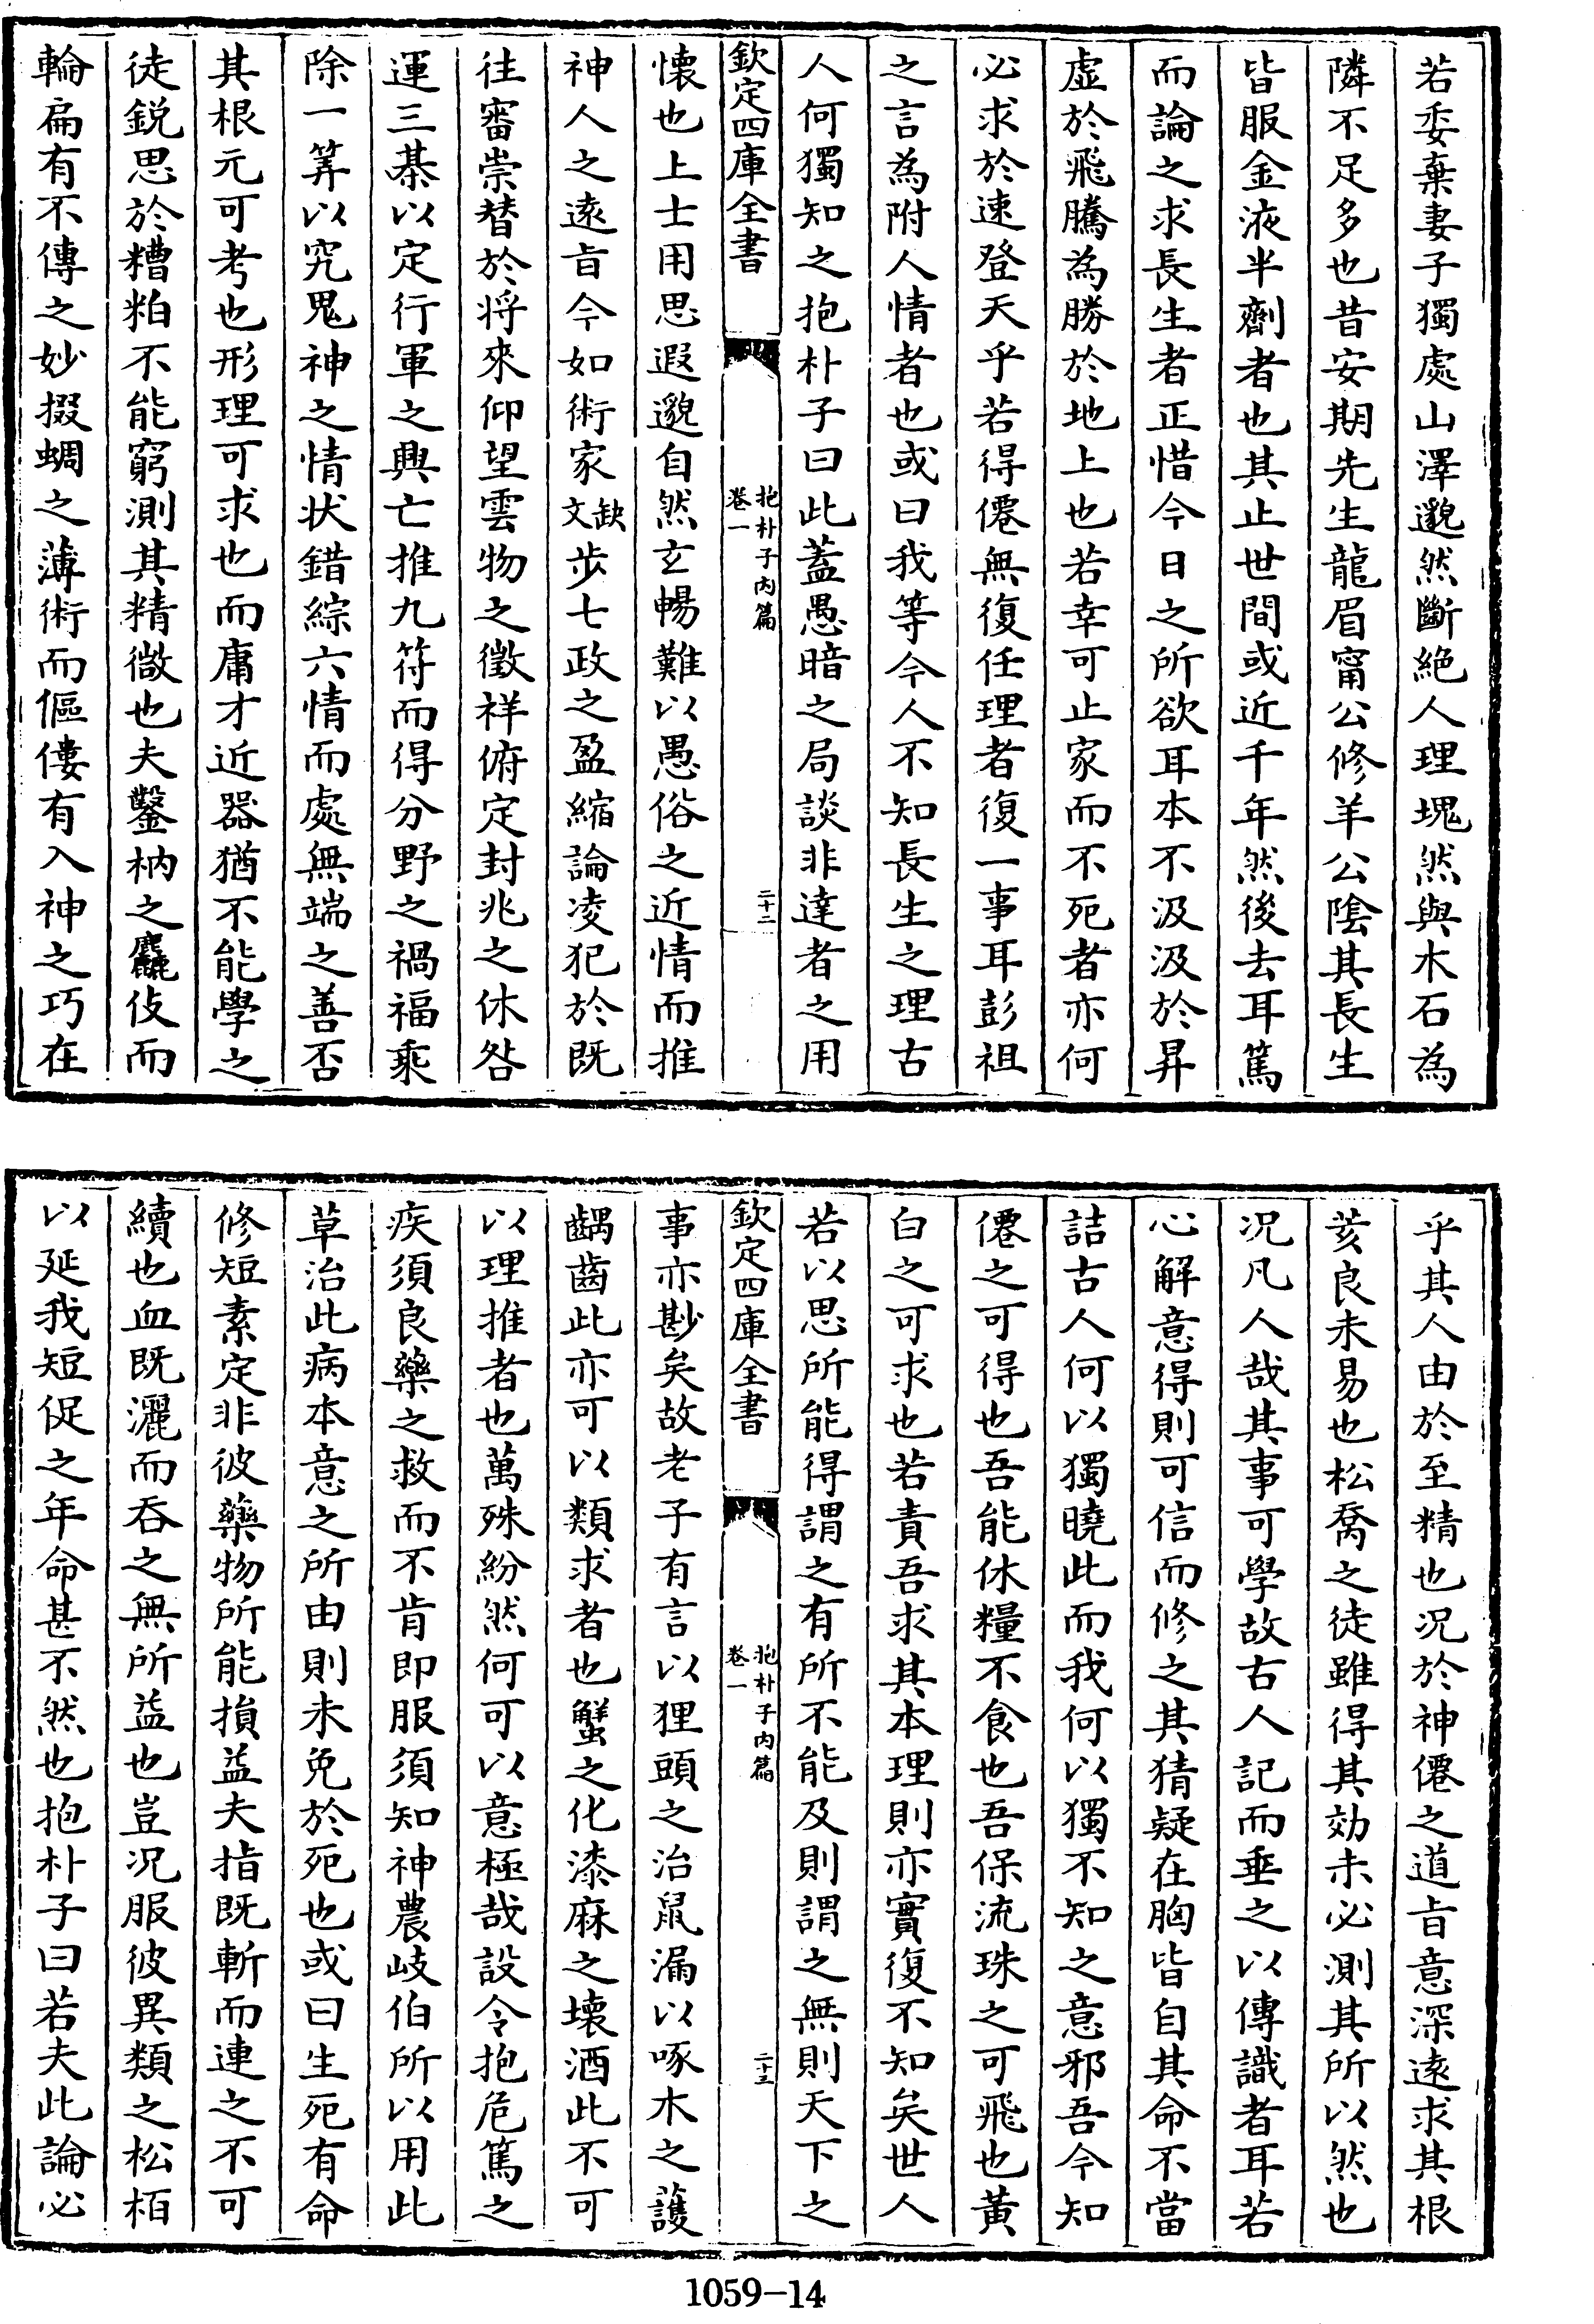 若委棄妻子獨處山澤邈然斷絶人理塊然與木石為
隣不足多也昔安期先生龍眉甯公修羊公陰其長生
皆服金液半劑者也其止世間或近千年然後去耳篤
而論之求長生者正惜今日之所欲耳本不汲汲於昇
虛於飛騰為勝於地上也若幸可止家而不死者亦何
必求於速登天乎若得僊無復任理者復一事耳彭祖
之言為附人情者也或曰我等今人不知長生之理古
人何獨知之抱朴子曰此蓋愚暗之局談非達者之用
欽定四庫全書
抱朴子内篇
卷一
二十二
懐也上士用思遐邈自然玄暢難以愚俗之近情而推
神人之逺旨今如術家缺文步七政之盈縮論凌犯於既
往審崇替於将來仰望雲物之徵祥俯定封兆之休咎
運三棊以定行軍之興亡推九符而得分野之禍福乘
除一筭以究鬼神之情状錯綜六情而處無端之善否
其根元可考也形理可求也而庸才近器猶不能學之
徒鋭思於糟粕不能窮測其精微也夫鑿枘之麤伎而
輪扁有不傳之妙掇蜩之薄術而傴僂有入神之巧在
乎其人由於至精也况於神僊之道旨意深逺求其根
荄良未易也松喬之徒雖得其効未必測其所以然也
况凡人哉其事可學故古人記而垂之以傳識者耳若
心解意得則可信而修之其猜疑在胸皆自其命不當
詰古人何以獨曉此而我何以獨不知之意邪吾今知
僊之可得也吾能休糧不食也吾保流珠之可飛也黄
白之可求也若責吾求其本理則亦實復不知矣世人
若以思所能得謂之有所不能及則謂之無則天下之
欽定四庫全書
抱朴子内篇
卷一
二十三
事亦尠矣故老子有言以狸頭之治鼠漏以啄木之䕶
齲齒此亦可以類求者也蟹之化漆麻之壊酒此不可
以理推者也萬殊紛然何可以意極哉設令抱危篤之
疾須良藥之救而不肯即服須知神農岐伯所以用此
草治此病本意之所由則未免於死也或曰生死有命
修短素定非彼藥物所能損益夫指既斬而連之不可
續也血既灑而吞之無所益也豈况服彼異類之松栢
以延我短促之年命甚不然也抱朴子曰若夫此論必
1059-14